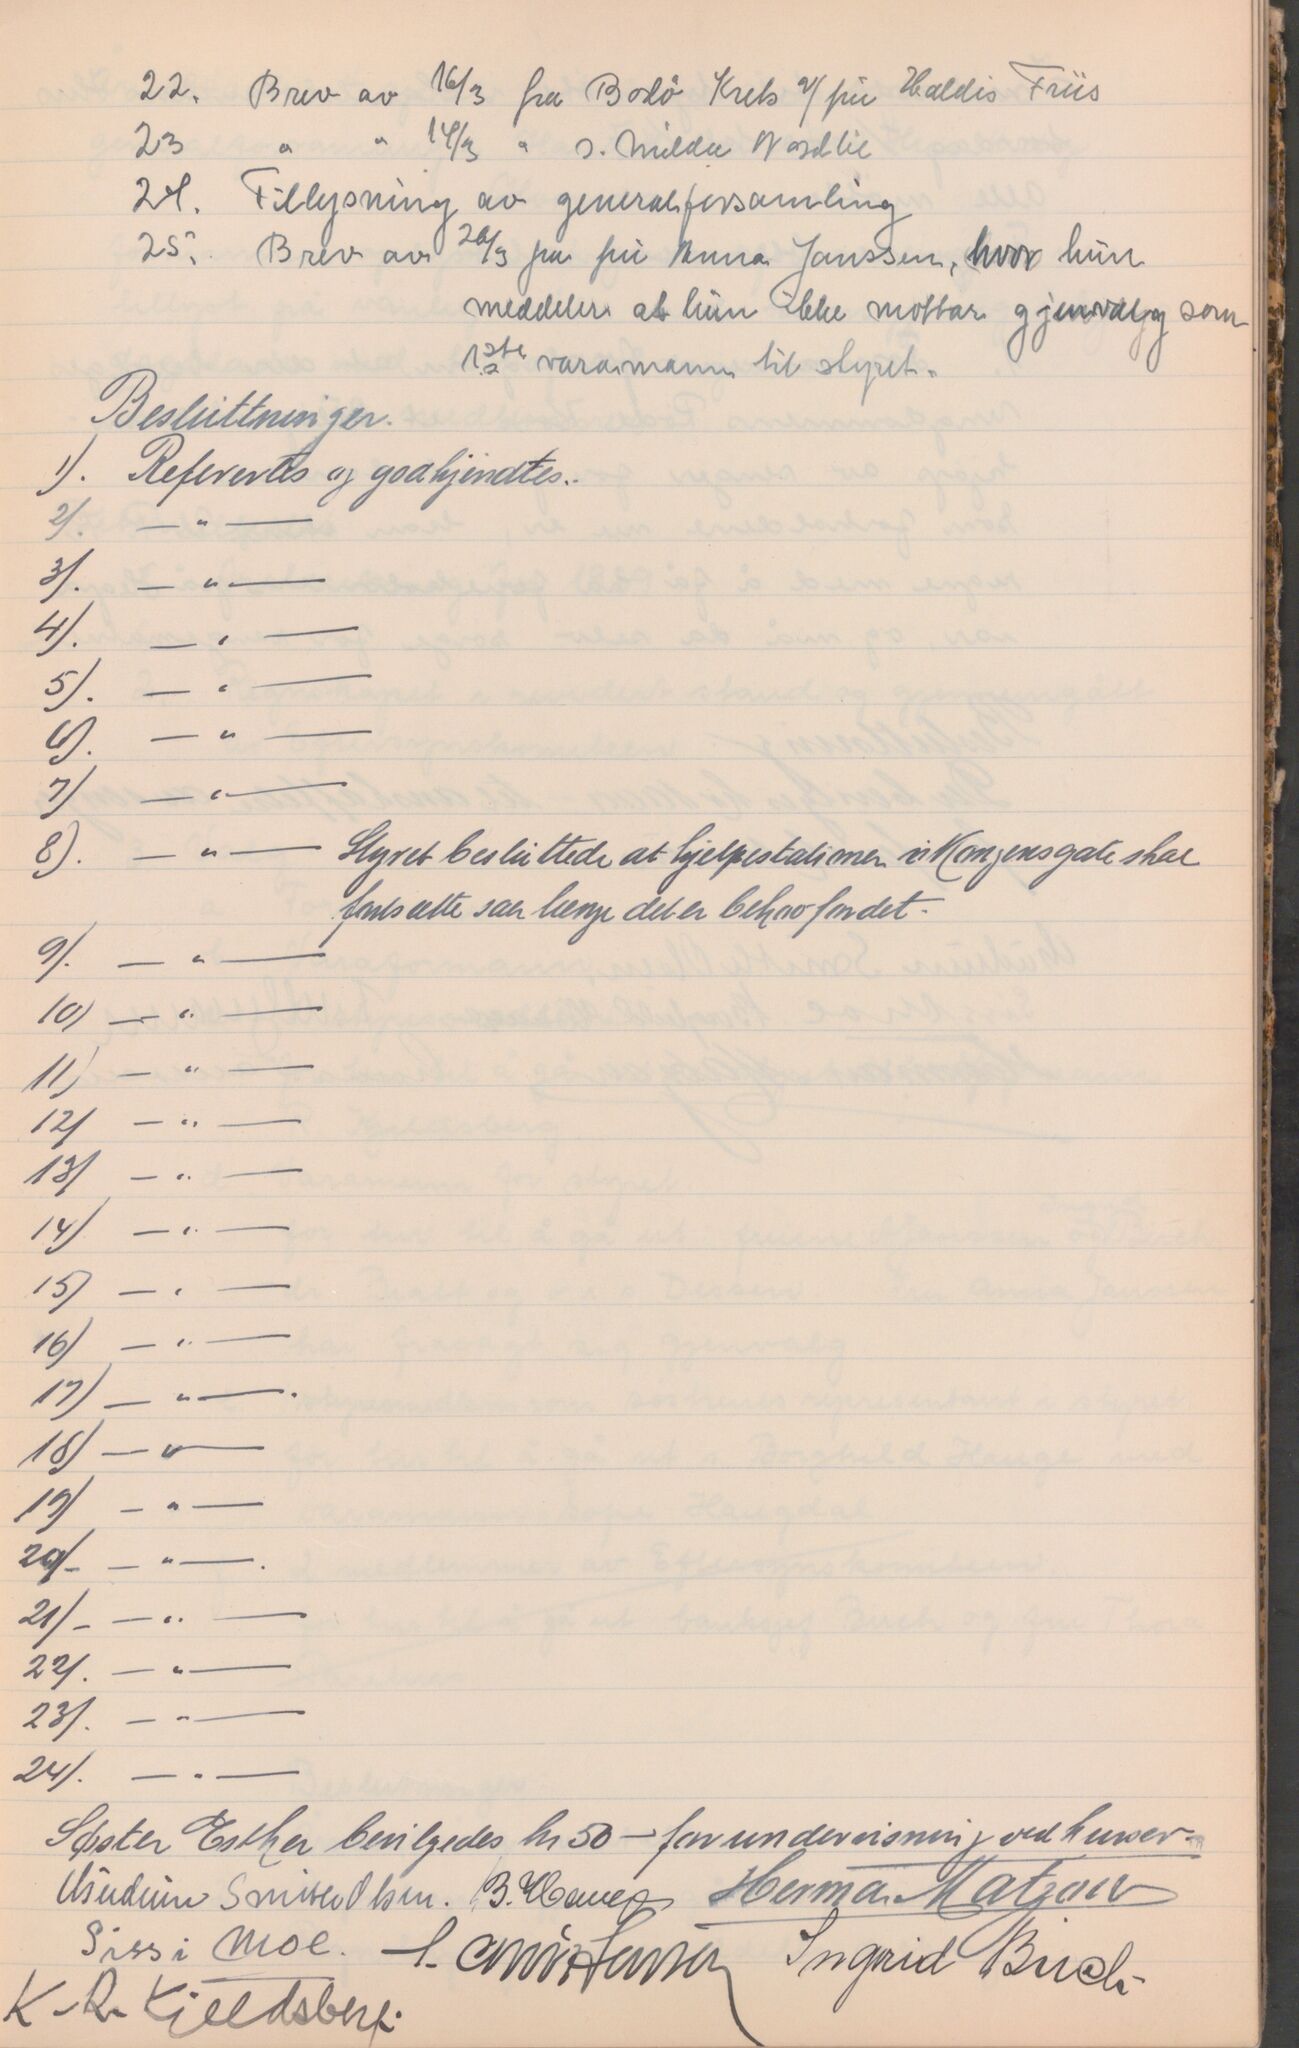 22. Brev av 16/3 fra Bodö Krets v/ fru Haldis Friis
23 " " 14/3 " s. Milda Nordlie
24. Tillysning av generalforsamling
25. Brev av 20/3 fra fru Anna Janssen, hvor hun
meddeler at hun ikke mottar gjenvalg som
1ste varamann til styret.
Besluttninger.
1). Refereertes og godkjendtes.
2). — " —
3). — " —
4). — " —
5). — " —
6). — " —
7) — " —
8). — " — Styret besluttede at hjelpestationen i Kongensgate skal
fortsætte saa længe det er behov for det.
9). — " —
10) — " —
11) — " —
12) — " —
13) — " —
14) — " —
15) — " —
16) — " —
17) — " —.
18) — " —
19) — " —
20)- — " —.
21)- — " —
22). — " —
23). — " —
24). — " —
Søster Esther bevilgedes kr 50 — for undervisning ved kurser.
Smith Olsen. B. Hauges Herma Matzow
Sissi Moe. Ingrid Buch
K. R. Kjeldsberg.